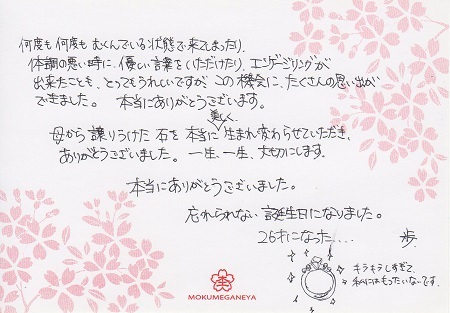 何度も何度もむくんでいる状態で来てしまったり、
体調の悪い時に、優しい言葉をいただけたり、エンゲージリングが
出来たことも、とってもうれしいですが、この機会に、たくさんの思い出が
できました。 本当にありがとうございます。
美しく
母から譲りうけた石を本当に生まれ変わらせていただき、
ありがとうございました。一生、一生、大切にします。
本当にありがとうございました。
忘れられない誕生日になりました。
26才になった.... 歩
キラキラしすぎて、
私にはもったいないです。
MOKUMEGANEYA